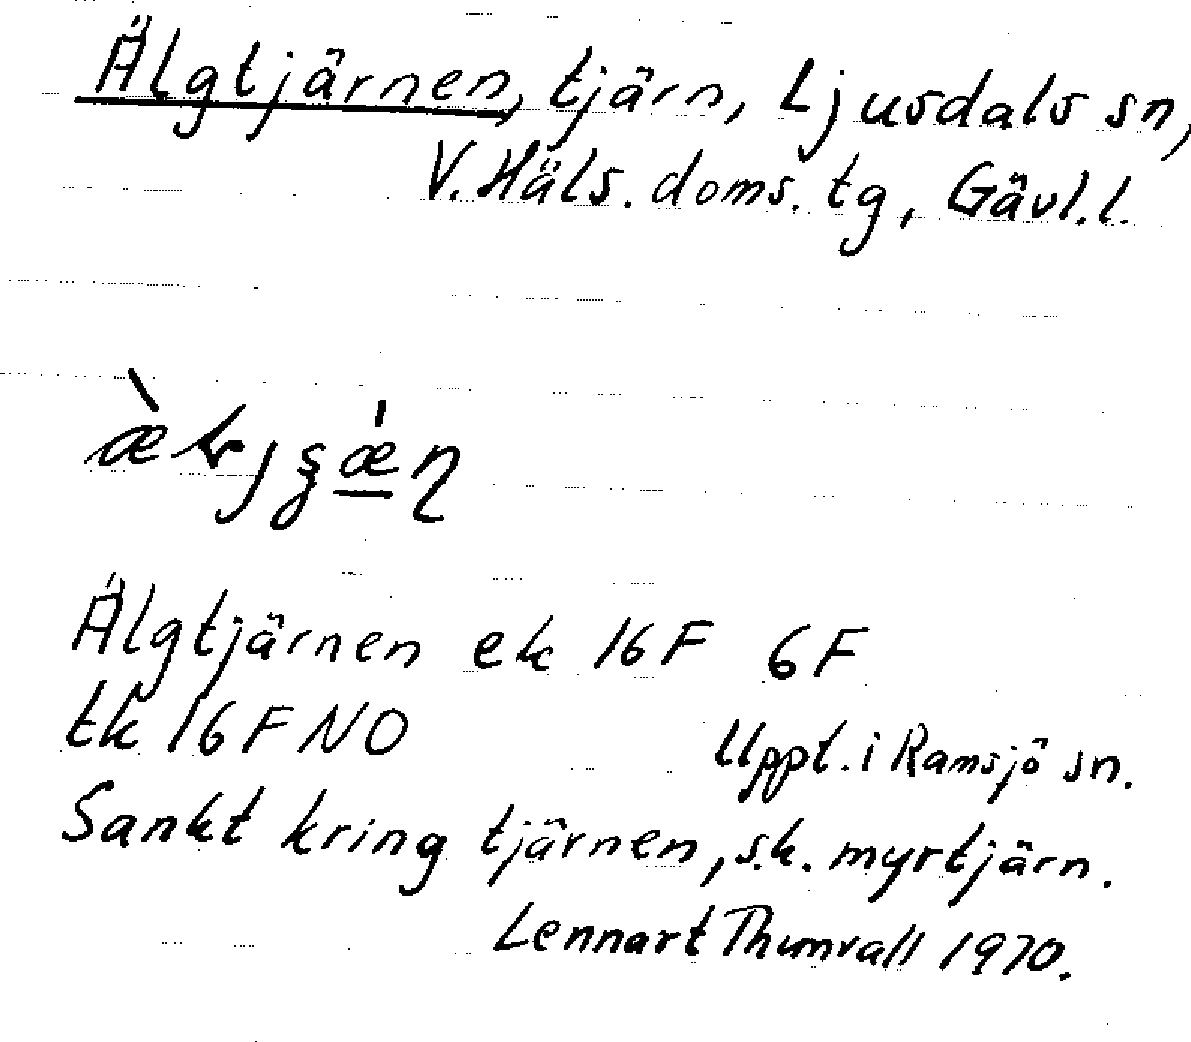 Älgtjärnen, tjärn, Ljusdals sn,
V. Häls. doms. tg, Gävl.l.
Älgtjärnen ek 16F 6F
tk 16F NO
Uppt. i Ramsjö sn.
Sankt kring tjärnen, s.k. myrtjärn.
Lennart Thunvall 1970.